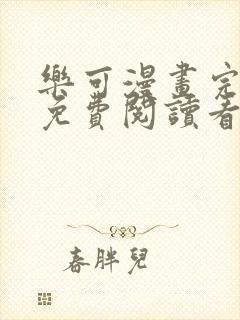 樂可漫畫完
免費閱讀看
春胖兒